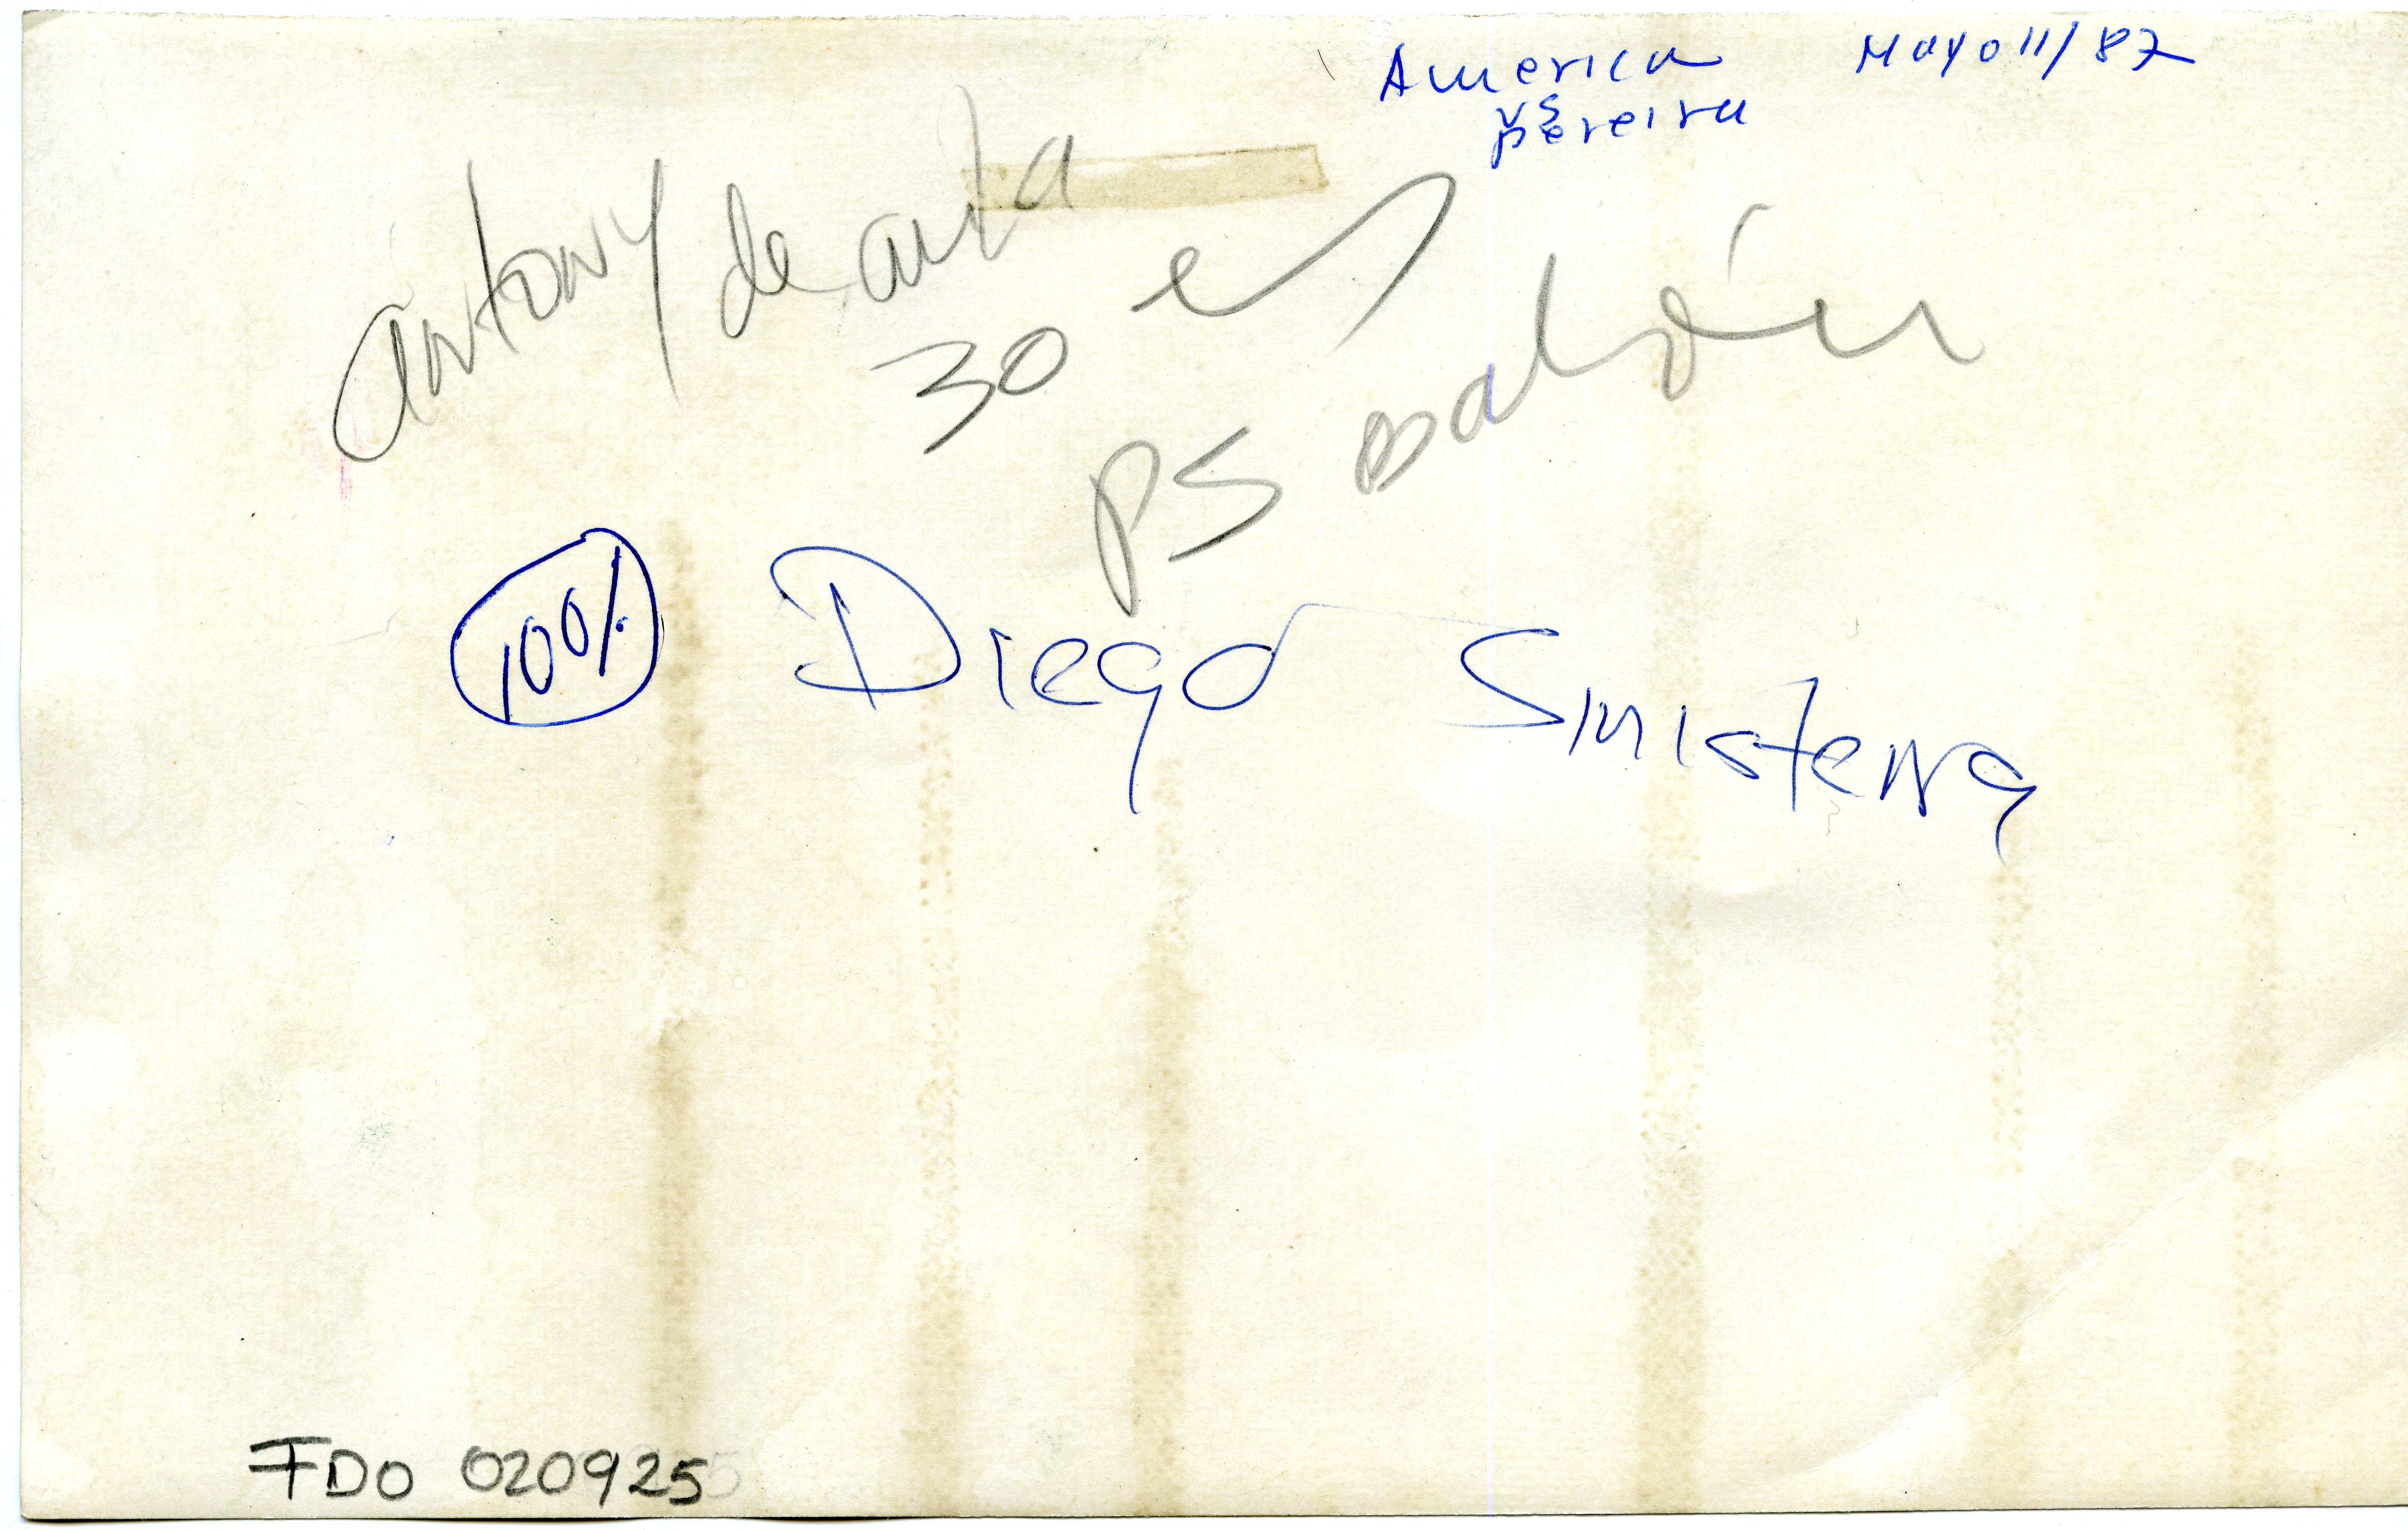 America Mayo 11/87
vs
pereira
antony de avila
30 e
PS balón
100%
Diego Sinisterra
FDO 020925